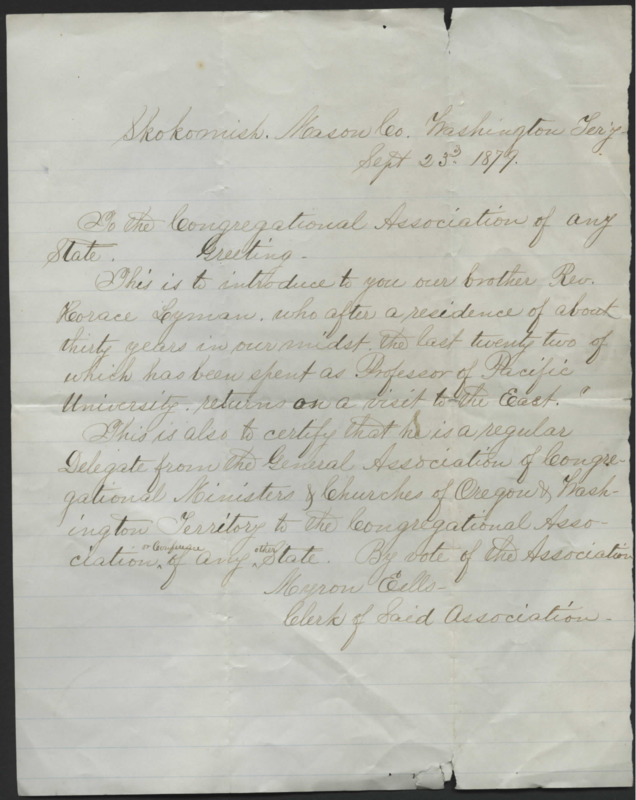 Skokomish. Mason Co. Washington Ter'y
Sept 23d. 1879.
To the Congregational Association of any
State. Greeting.
This is to introduce to you our brother Rev.
Horace Lyman. who after a residence of about
thirty years in our midst, the last twenty two of
which has been spent as Professor of Pacific
University. returns on a visit to the East."
This is also to certify that he is a regular
Delegate from the General Association of Congre-
gational Ministers & Churches of Oregon & Wash-
ington Territory to the Congregational Asso-
ciation, or Conference of any other State. By vote of the Association
Myron Eells-
Clerk of Said Association-